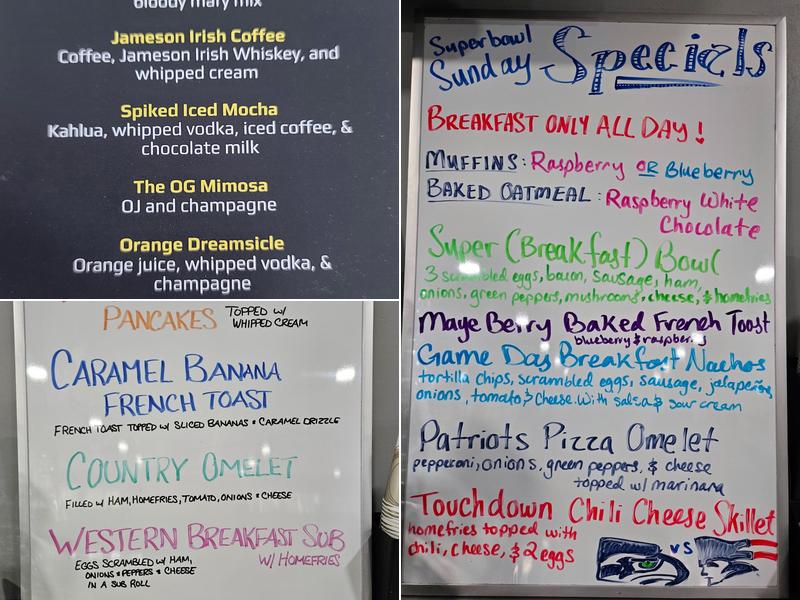 bloody mary mix
Jameson Irish Coffee
Coffee, Jameson Irish Whiskey, and
whipped cream
Spiked Iced Mocha
Kahlua, whipped vodka, iced coffee, &
chocolate milk
The OG Mimosa
OJ and champagne
Orange Dreamsicle
Orange juice, whipped vodka, &
champagne
PANCAKES TOPPED W/
WHIPPED CREAM
CARAMEL BANANA
FRENCH TOAST
FRENCH TOAST TOPPED W/ SLICED BANANAS & CARAMEL DRIZZLE
COUNTRY OMELET
FILLED W/ HAM, HOMEFRIES, TOMATO, ONIONS & CHEESE
WESTERN BREAKFAST SUB
W/ HOMEFRIES
EGGS SCRAMBLED W/ HAM,
ONIONS & PEPPERS & CHEESE
IN A SUB ROLL
Superbowl
Sunday Specials
BREAKFAST ONLY ALL DAY!
MUFFINS: Raspberry OR Blueberry
BAKED OATMEAL: Raspberry White
Chocolate
Super (Breakfast) Bowl
3 scrambled eggs, bacon, sausage, ham,
onions, green peppers, mushrooms, cheese, & homefries
Maye Berry Baked French Toast
blueberry & raspberry
Game Day Breakfast Nachos
tortilla chips, scrambled eggs, sausage, jalapeños
onions, tomato & cheese. With salsa & sour cream
Patriots Pizza Omelet
pepperoni, onions, green peppers, & cheese
topped w/ marinara
Touchdown Chili Cheese Skillet
homefries topped with
chili, cheese, & 2 eggs
VS